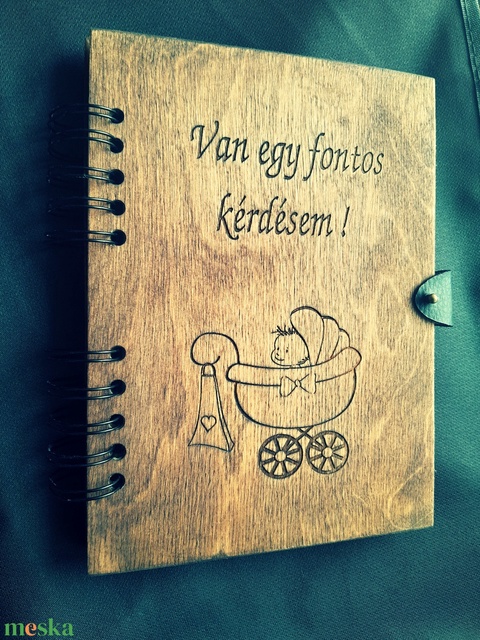 Van egy fontos
kérdésem !
meska